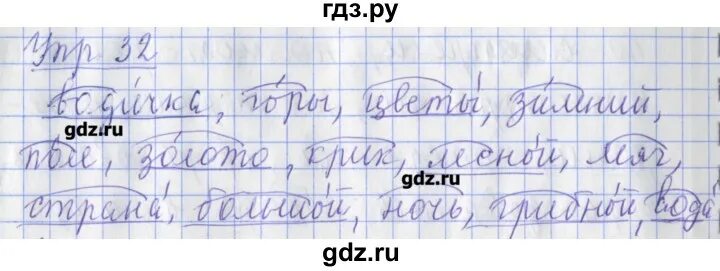 гдз.ру
Упр 32
водичка, горы, цветы, зимний,
gdz.ru
поле, золото, крик, лесной, мяч,
gdz.ru
страна, большой, ночь, грибной, вода
gdz.ru